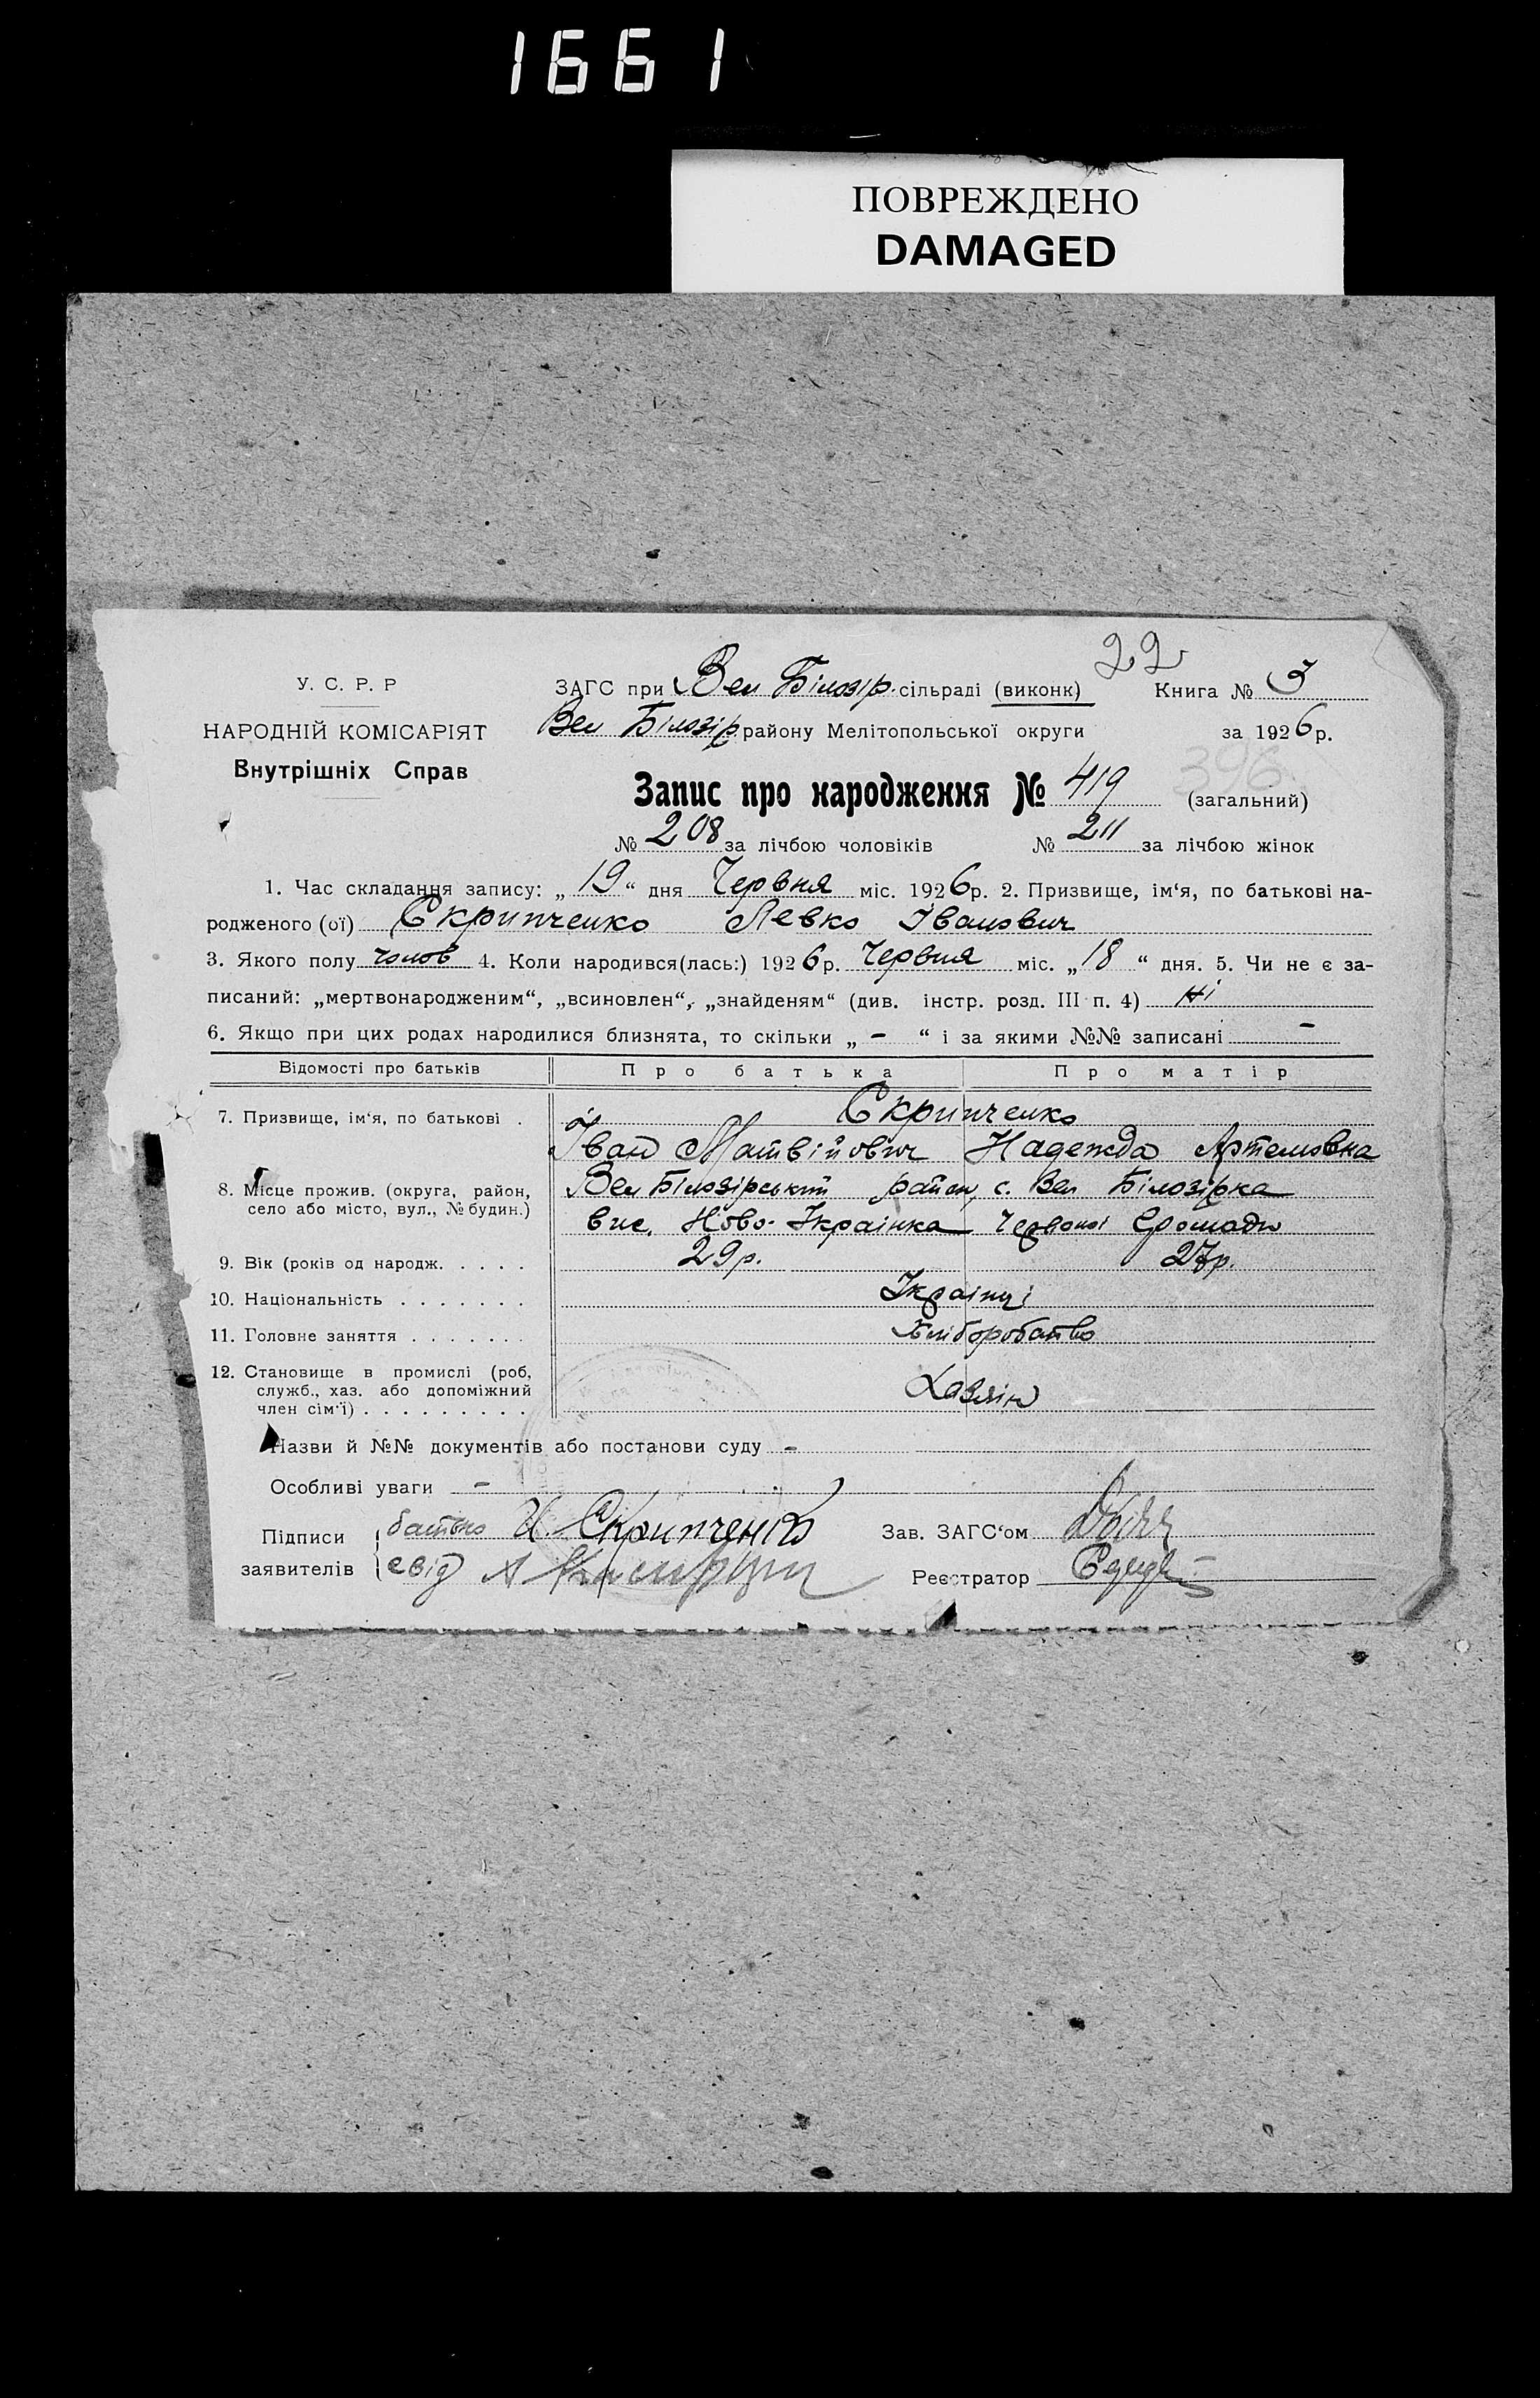 1661
ПОВРЕЖДЕНО
DAMAGED
22
У. С. Р. Р
ЗАГС при Вел Білозір. сільраді (виконк) Книга № 3
НАРОДНІЙ КОМІСАРІЯТ
Вел Білозір району Мелітопольської округи за 1926 р.
Внутрішніх Справ
396
Запис про народження № 419 (загальний)
№ 208 за лічбою чоловіків № 211 за лічбою жінок
1. Час складання запису: „ 19 “ дня Червня міс. 1926 р. 2. Призвище, ім‘я, по батькові на-
родженого (ої) Скрипченко Левко Іванович
3. Якого полу чолов 4. Коли народився(лась:) 1926 р. Червня міс. „ 18 “ дня. 5. Чи не є за-
писаний: „мертвонародженим“, „всиновлен“, „знайденям“ (див. інстр. розд. III п. 4) Ні
6. Якщо при цих родах народилися близнята, то скільки „ - “ і за якими №№ записані -
Відомості про батьків Про батька Про матір
7. Призвище, ім‘я, по батькові . Скрипченко
Іван Матвійович Надежда Артемовна
8. Місце прожив. (округа, район, Вел Білозірський район, с. Вел Білозірка
село або місто, вул., № будин.) вис. Ново-Українка Червоної Громади
9. Вік (років од народж. . . . . . 29 р. 27 р.
10. Національність . . . . . . . Українці
11. Головне заняття . . . . . . . Хліборобство
12. Становище в промислі (роб,
служб., хаз. або допоміжний
член сім‘ї) . . . . . . . . . Хазяін
Назви й №№ документів або постанови суду -
Особливі уваги -
Підписи батько И. Скрипченко Зав. ЗАГС‘ом
заявителів свід А Реєстратор